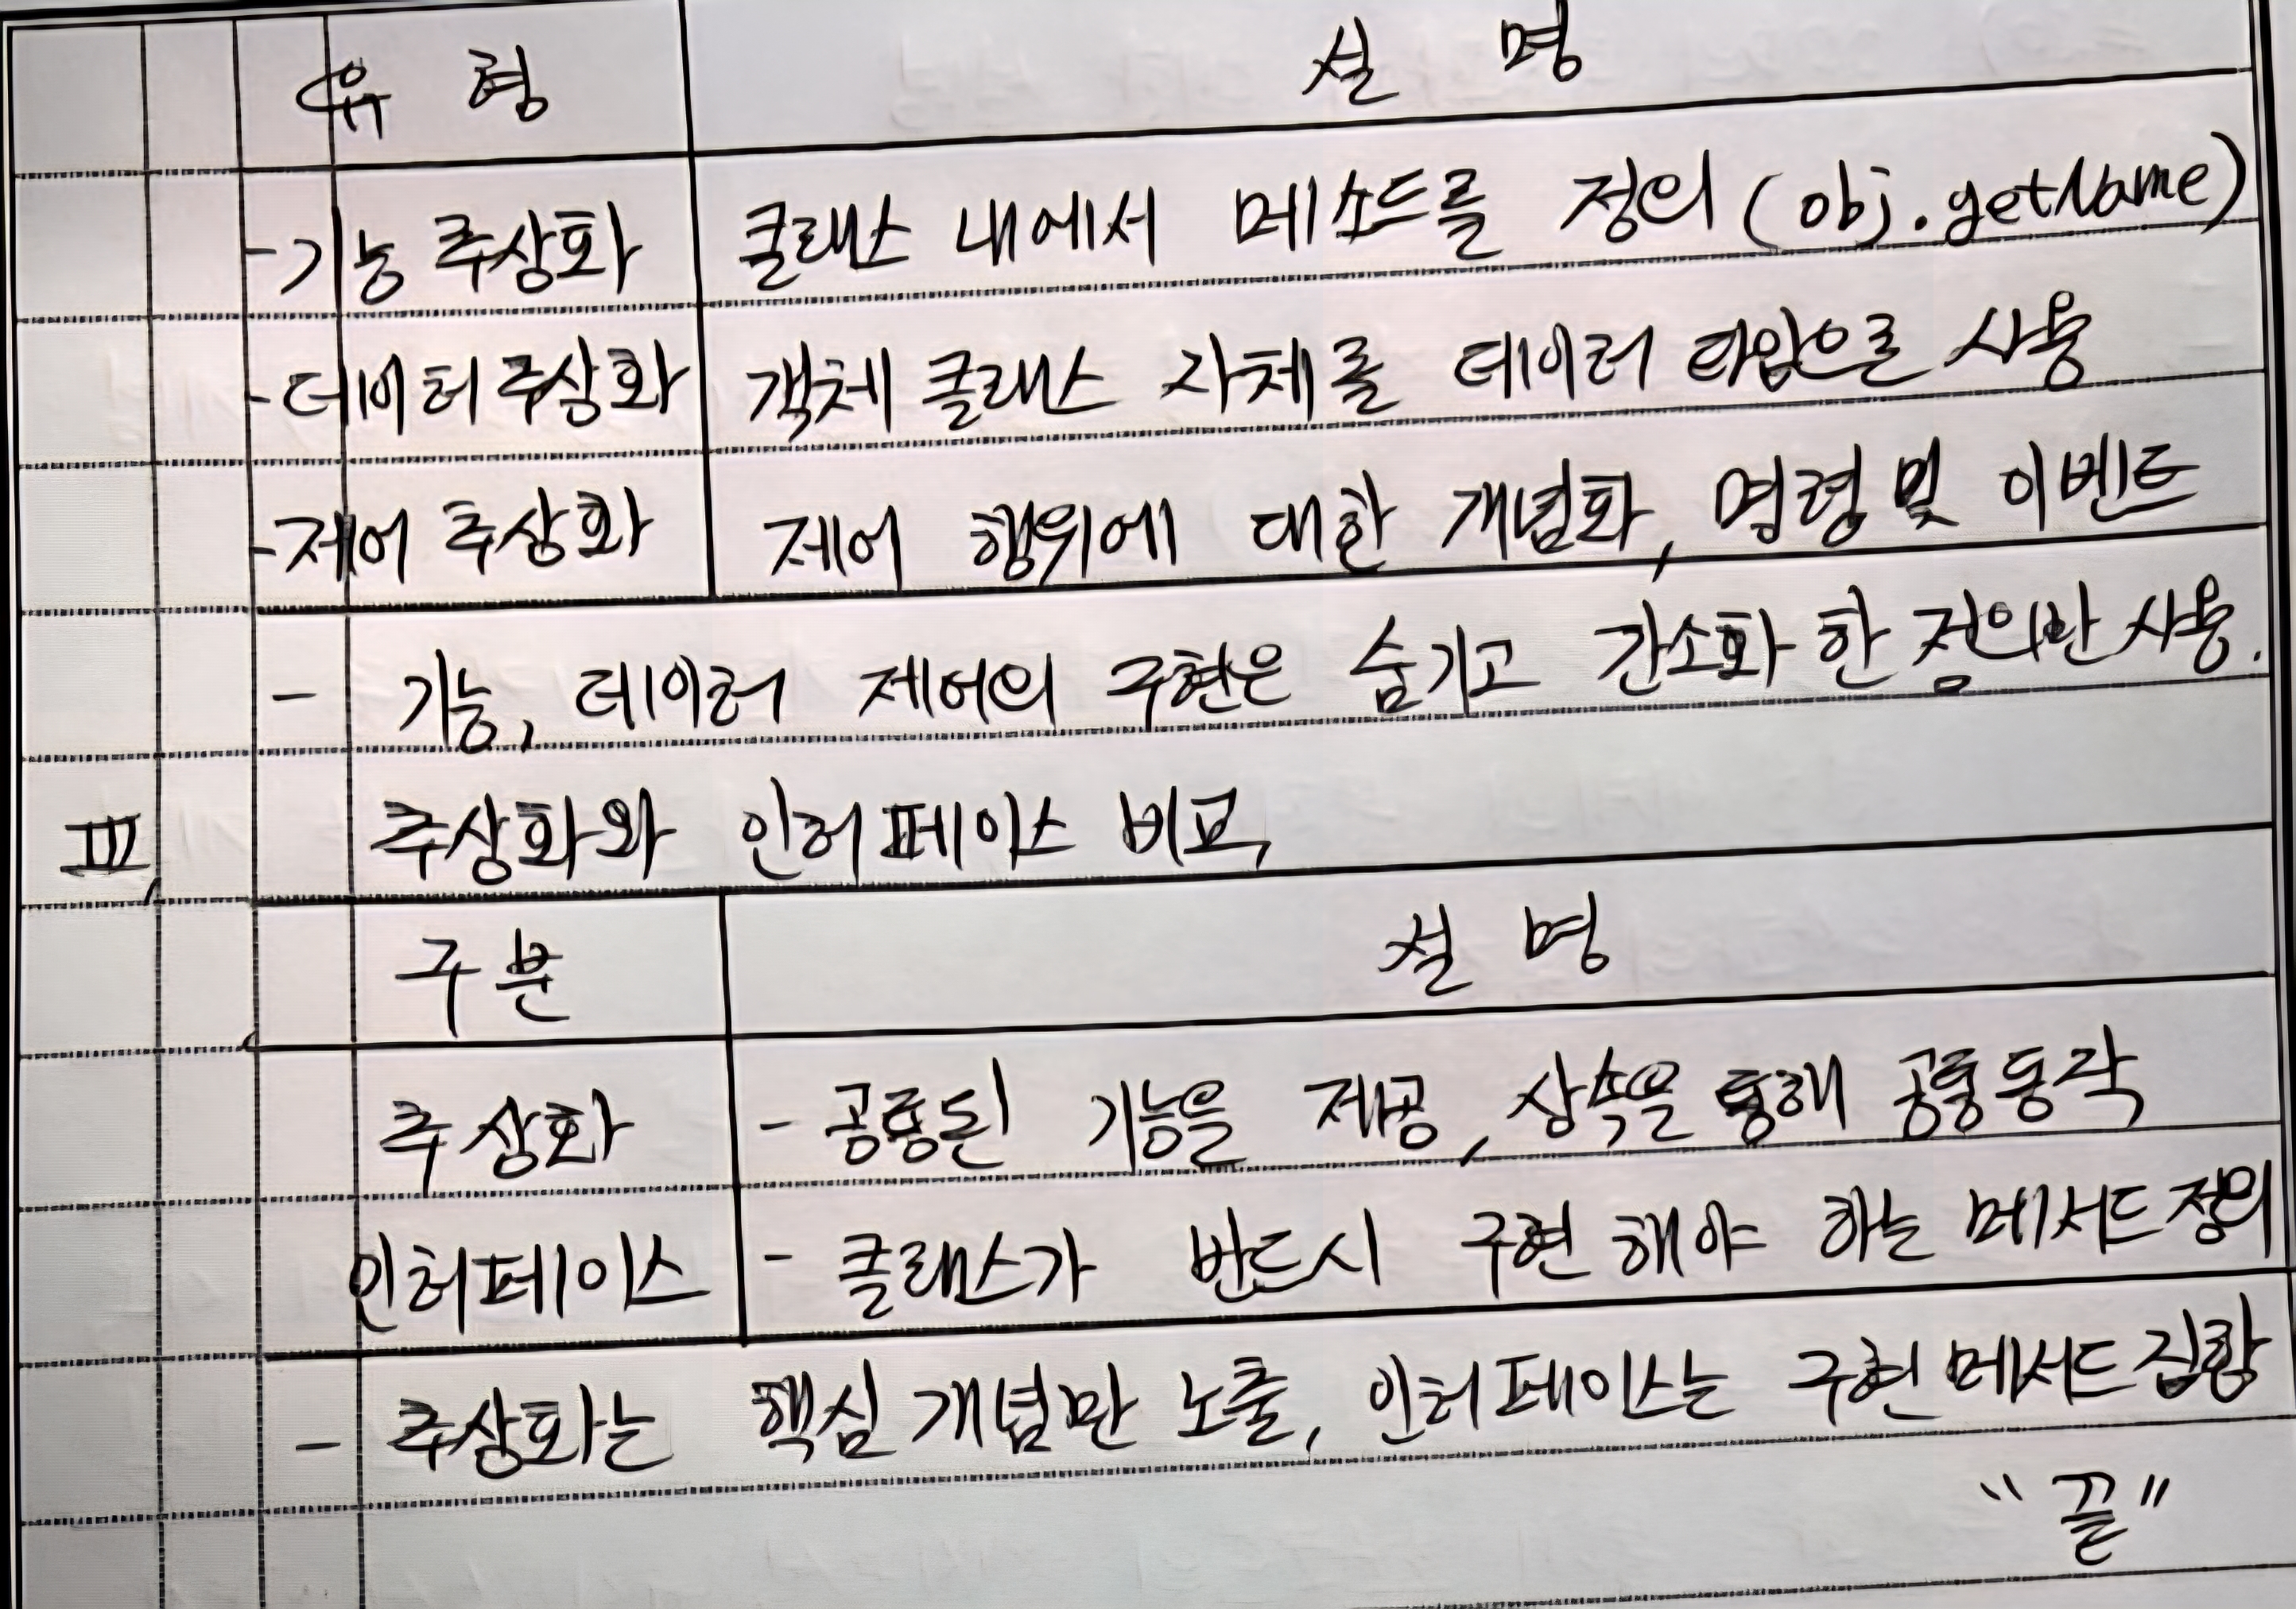 유형 설명
-기능 추상화 클래스 내에서 메소드를 정의(obj.getName)
-데이터 추상화 객체 클래스 자체를 데이터 타입으로 사용
-제어 추상화 제어 행위에 대한 개념화, 명령 및 이벤트
- 기능, 데이터 제어의 구현은 숨기고 간소화 한 정의만 사용.
Ⅲ, 추상화와 인터페이스 비교
구분 설명
추상화 - 공통된 기능을 제공, 상속을 통해 공통동작
인터페이스 - 클래스가 반드시 구현 해야 하는 메서드 정의
- 추상화는 핵심 개념만 노출, 인터페이스는 구현 메서드 집합
"끝"